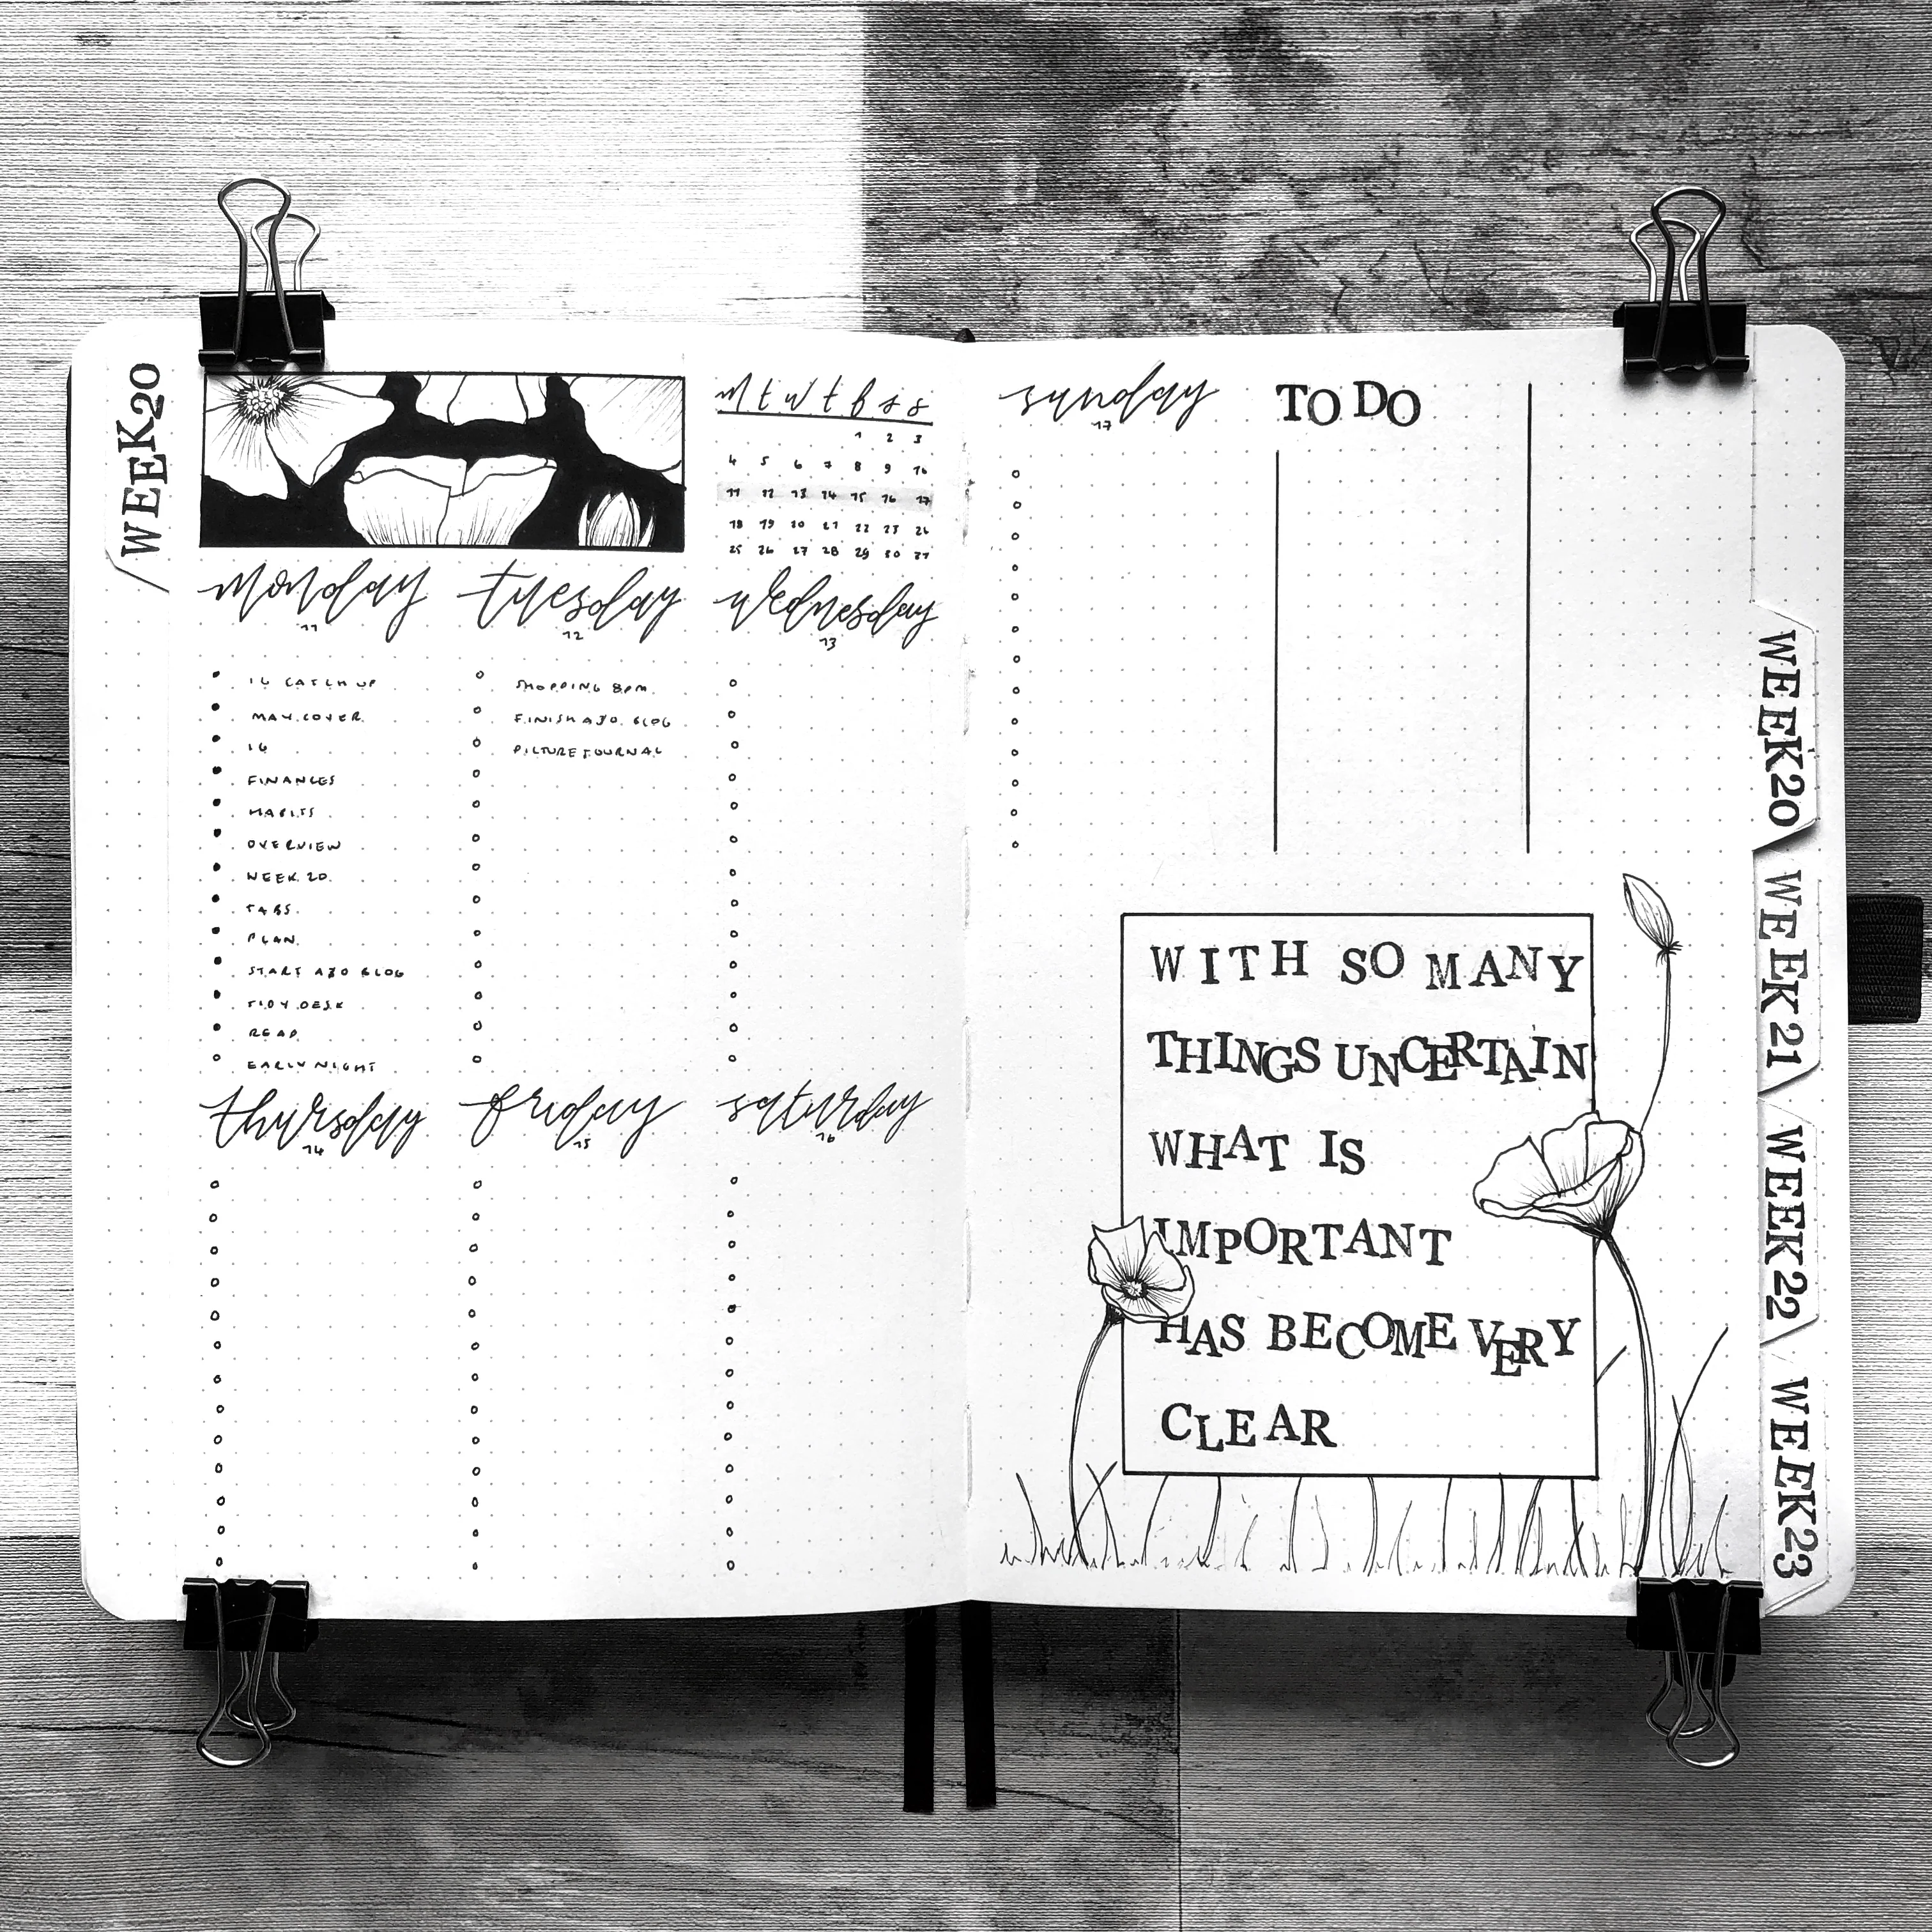 WEEK20
M t w t f s s
1 2 3
4 5 6 7 8 9 10
11 12 13 14 15 16 17
18 19 20 21 22 23 24
25 26 27 28 29 30 31
monday
11
IG CATCH UP
MAY COVER
IG
FINANCES
HABITS
OVERVIEW
WEEK 20
TABS
PLAN
START A30 BLOG
TIDY DESK
READ
EARLY NIGHT
tuesday
12
SHOPPING 8PM
FINISH A30 BLOG
PICTURE JOURNAL
wednesday
13
thursday
14
friday
15
saturday
16
sunday
17
TO DO
WITH SO MANY
THINGS UNCERTAIN
WHAT IS
IMPORTANT
HAS BECOME VERY
CLEAR
WEEK20
WEEK21
WEEK22
WEEK23